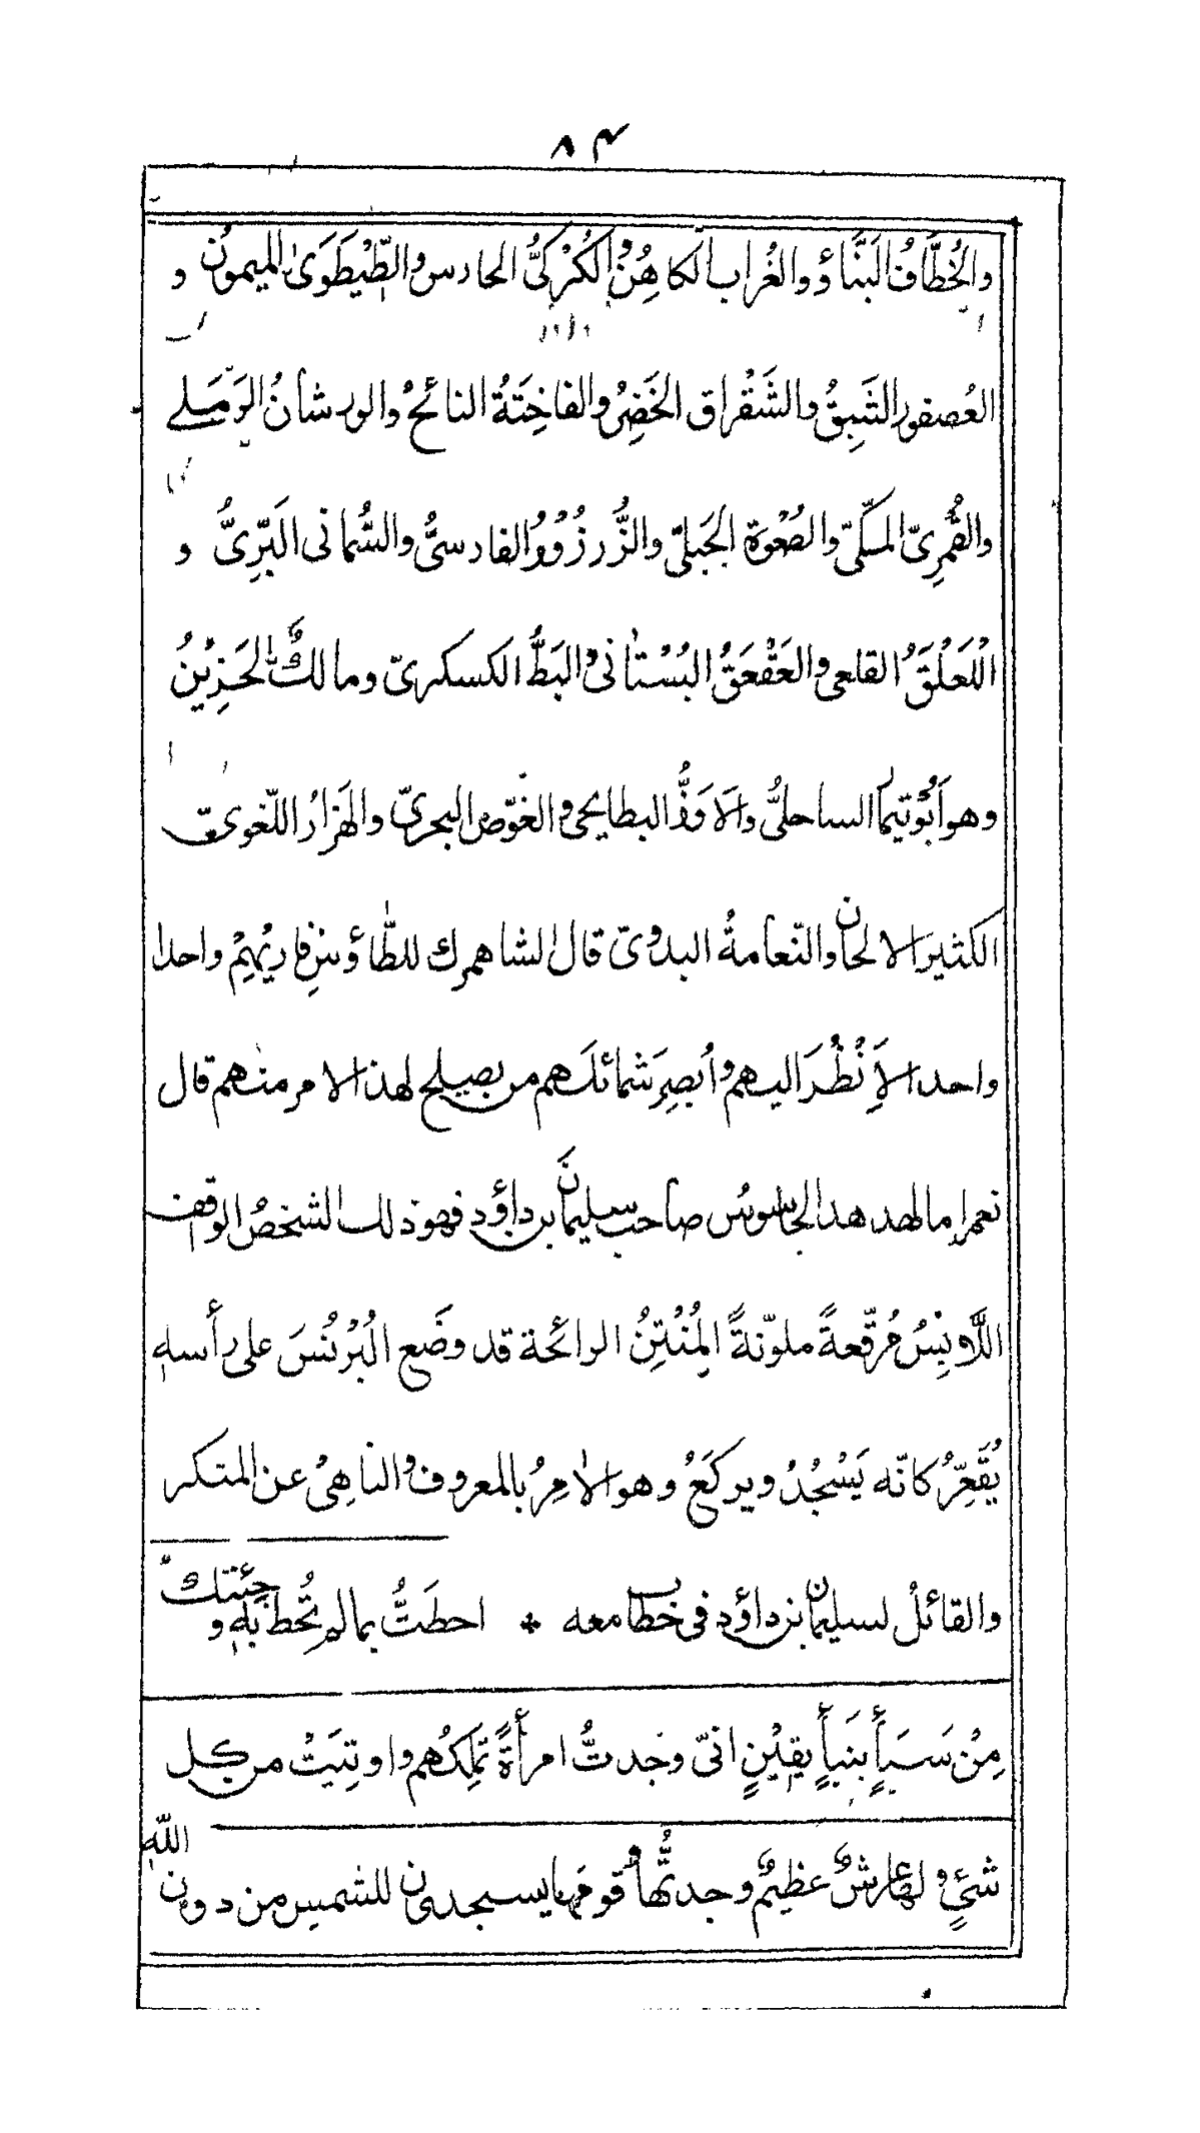 ٨٤
والخُطَّافُ البَنَّاؤ والغُراب الكاهِنُ والكُرْكىُّ الحارس والطِّيْطَوَىٰ الميمونُ و
العُصفور الشَبِقُ والشَقْراق الخَضِرُ والفاخِتَةُ النائحُ والورشانُ الرَملے
والقُمرِىّ المكّىّ والصُعْوَة الجَبلىّ والزُّرزُوْرُ الفارسىُّ والسُّمانى البَرِّىُّ و
اللَعَلْقَ القلعى والعَقْعَقُ البُسْتانىُ والبَطُّ الكسكرىّ ومالكٌ الحَزِيْنُ
وهو اَبُوْتيمار الساحلىُّ والاوَزُّ البطايحى والغوّص البحرىّ والهَزارُ اللّغوىّ
الكثير الالحان والنّعامةُ البدوىّ قال الشاهمرك للطّاؤسِ فارِيْهِمْ واحدا
واحدا لاَنْظُرَ اليهم واُبصِرَ شمائلَهم من يصلح لهذا الامر منهم قال
نعم اما الهدهد الجاسوسُ صاحب سليمانَ بن داؤد فهو ذلك الشخصُ الواقف
اللّابِسُ مُرقّعةً ملوّنةً المُنْتِنُ الرائحة قد وضَع البُرْنُسَ على رأسه
يُقَعِّرُ كانّه يَسْجُدُ ويركَعُ وهو الامِرُ بالمعروف والناهِىُ عن المنكر
والقائلُ لسليمان بن داؤد فى خطاب معه * احطَتُّ بمالم تُحط به وجئتك
مِنْ سَبَأٍ بنبأٍ يقِيْنٍ انىّ وجدتُّ امرأَةً تملِكُهم واوتِيَتْ من كل
شئٍ ولها عرشٌ عظيمٌ وجدتُّها وقومَها يسجدون للشمس من دون الله